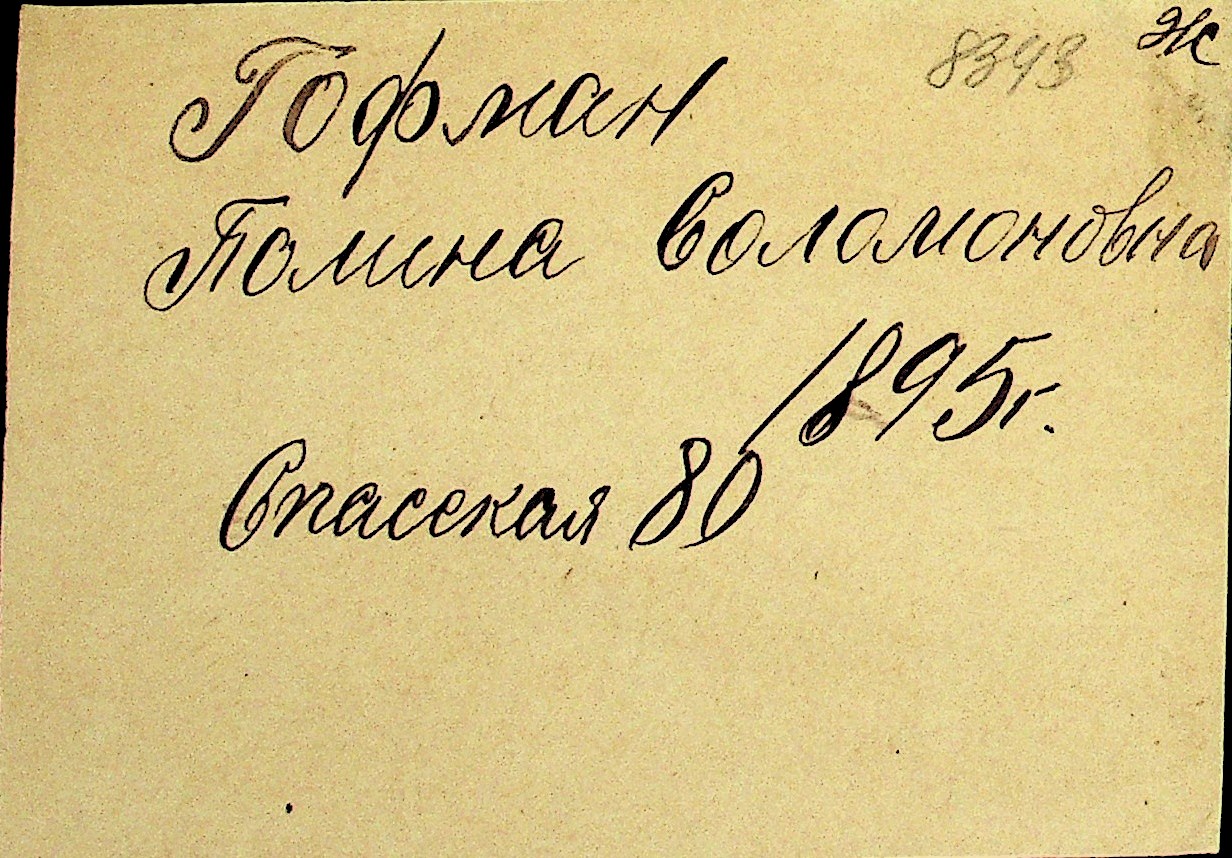 8393 Ж
Гофман
Полина Соломоновна
1895г.
Спасская 80